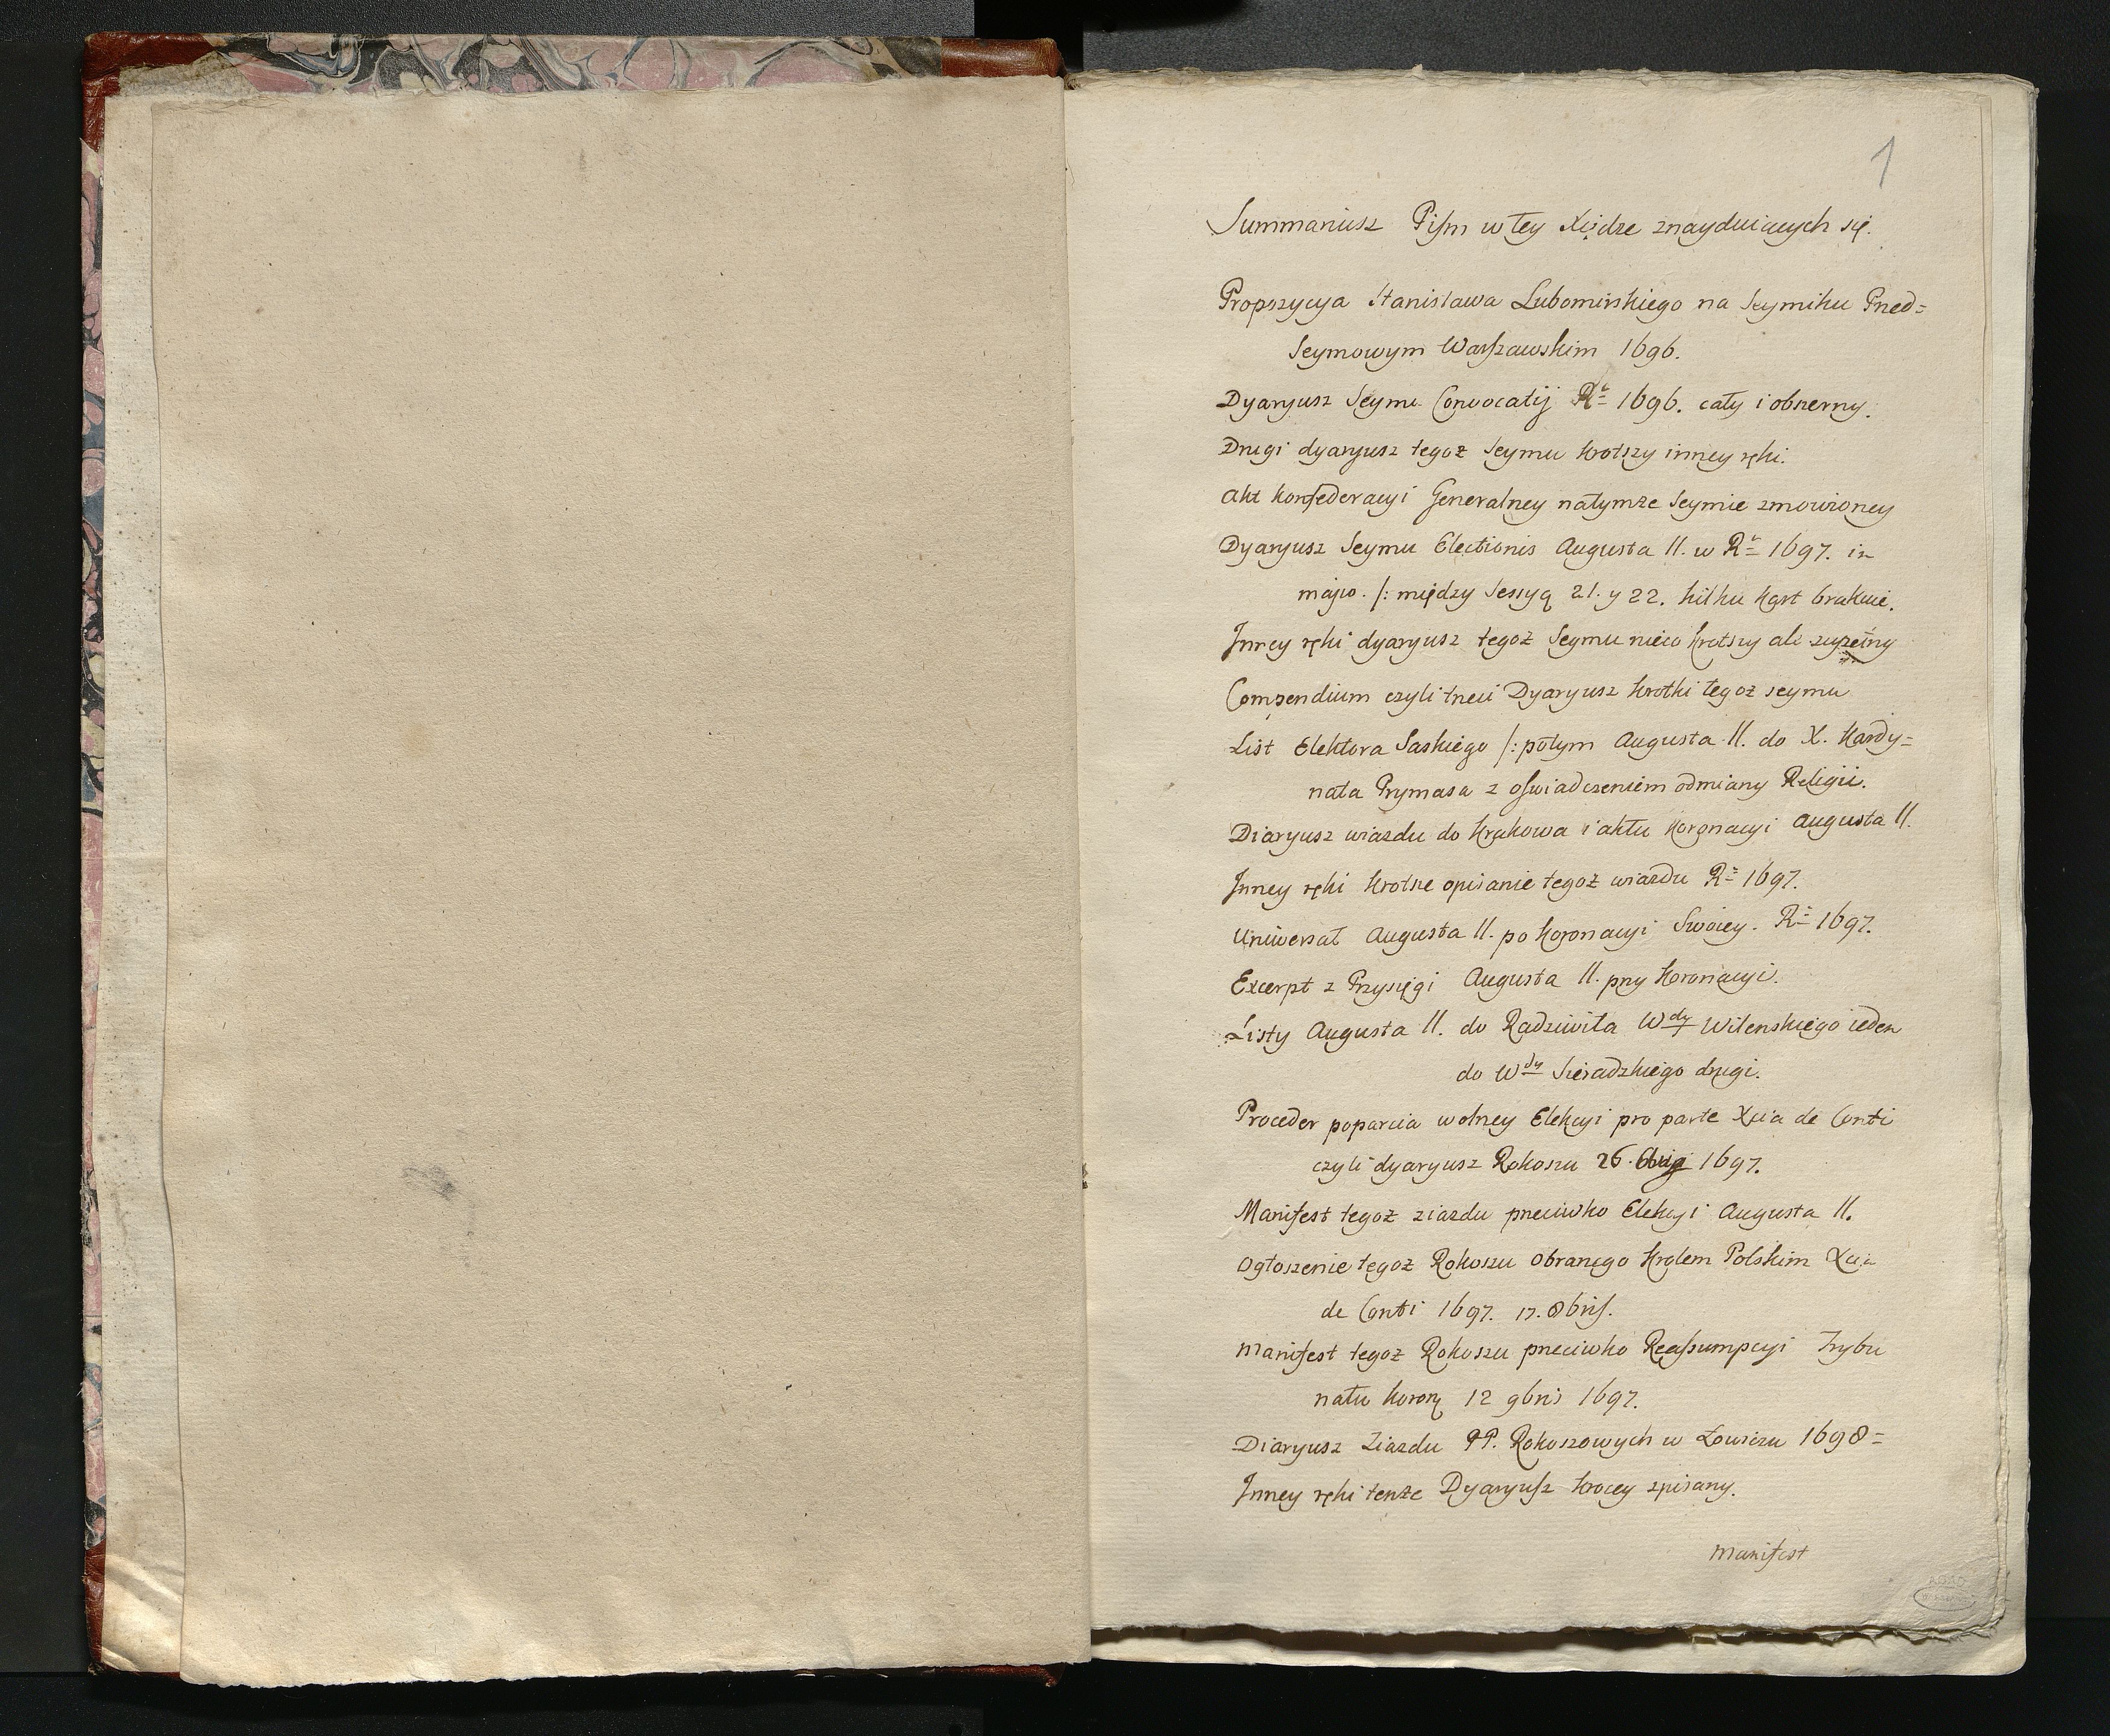 1
Summariusz Pism w tey Xiędze znayduiących się.
Propozycya Stanisława Lubomirskiego na Seymiku Przed=
Seymowym Warszawskim 1696.
Dyaryusz Seymu Convocatij Rᵘ 1696. cały i obszerny.
Drugi dyaryusz tegoż Seymu krotszy inney ręki.
Akt konfederacyi Generalney na tymże Seymie zmowioney
Dyaryusz Seymu Electionis Augusta II. w Rᵘ 1697. in
majio. /: między Sessyą 21. y 22. kilku kart brakuie.
Inney ręki dyaryusz tegoż Seymu nieco krotszy ale zupełny
Compendium czyli trzeci Dyaryusz krotki tegoż seymu
List Elektora Saskiego /: potym Augusta II. do X. Kardy=
nała Prymasa z oświadczeniem odmiany Religii.
Diaryusz wiazdu do Krakowa i aktu Koronacyi Augusta II.
Inney ręki krotsze opisanie tegoż wiazdu Rᵘ 1697.
Uniwersał Augusta II. po Koronacyi Swoiey. Rᵘ 1697.
Excerpt z Przysięgi Augusta II. przy Koronacyi.
Listy Augusta II. do Radziwiła Wdy Wilenskiego ieden
do Wdy Sieradzkiego drugi.
Proceder poparcia wolney Elekcyi pro parte Xcia de Conti
czyli dyaryusz Rokoszu 26. Aug 1697.
Manifest tegoż ziazdu przeciwko Elekcyi Augusta II.
Ogłoszenie tegoż Rokoszu obranego Krolem Polskim Xcia
de Conti 1697. 17. 8bris.
Manifest tegoż Rokoszu przeciwko Reassumpcyi Trybu
nału koron 12 9bris 1697.
Diaryusz Ziazdu PP. Rokoszowych w Łowiczu 1698=
Inney ręki tenże Dyaryusz krocey spisany.
Manifest